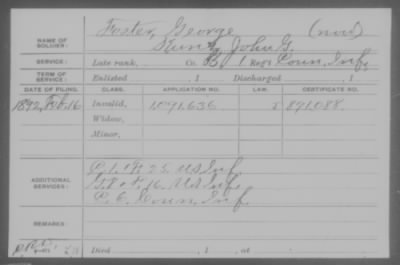 Foster, George (now)
NAME OF SOLDIER: John G.
SERVICE: Late rank, Co. B, 1 Reg't Conn. Inf.
TERM OF SERVICE: Enlisted , 1 Discharged , 1
DATE OF FILING. CLASS. APPLICATION NO. LAW. CERTIFICATE NO.
1892, Feb. 16 Invalid, 1091,636 891,088.
Widow,
Minor,
C. 1. & F 25. US Inf
ADDITIONAL SERVICES: G. 8 & F. 16. US Inf,
C. 6. Conn Inf.
REMARKS:
Died , 1 , at